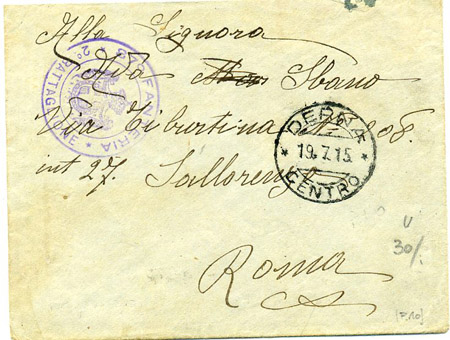 Alla Signora
Ada Sbano
Via Tiburtina N. 208.
int 27. Sallorenzo
Roma
FANTERIA * 2° BATTAGLIONE *
DERNA
* 19.7.15 *
CENTRO
30/.